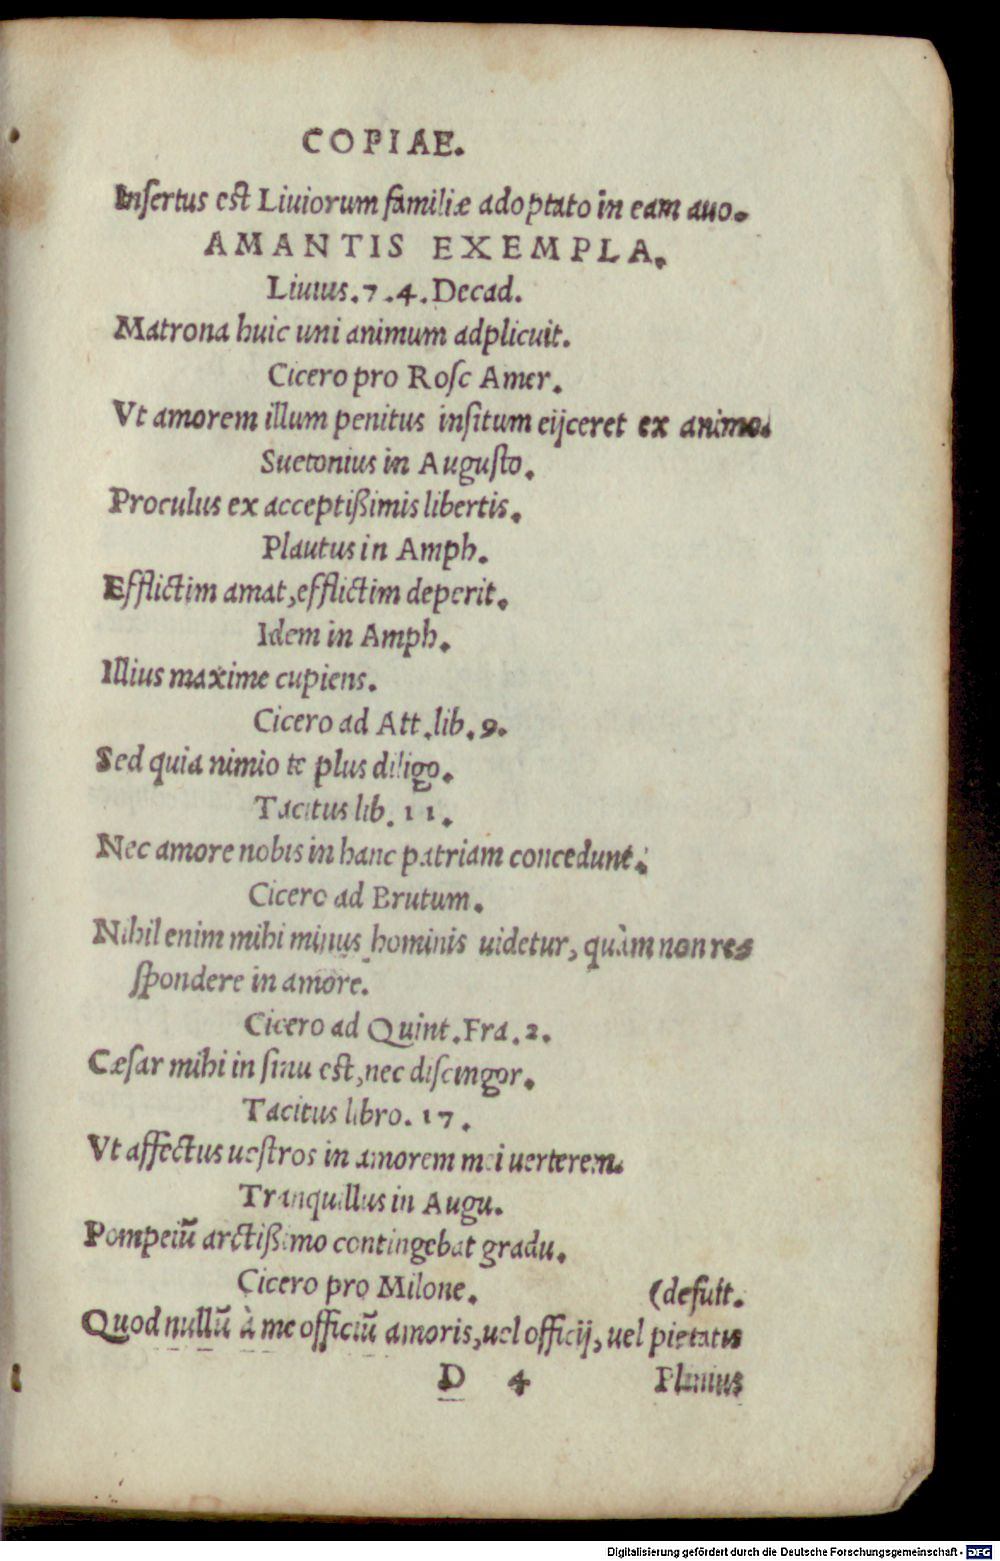 COPIAE.
Insertus est Liuiorum familiæ adoptato in eam auo.
AMANTIS EXEMPLA.
Liuius.7.4.Decad.
Matrona huic uni animum adplicuit.
Cicero pro Rosc Amer.
Vt amorem illum penitus insitum eijceret ex animo.
Suetonius in Augusto.
Proculus ex acceptißimis libertis.
Plautus in Amph.
Efflictim amat, efflictim deperit.
Idem in Amph.
Illius maxime cupiens.
Cicero ad Att.lib.9.
Sed quia nimio te plus diligo.
Tacitus lib. 11.
Nec amore nobis in hanc patriam concedunt.
Cicero ad Brutum.
Nihil enim mihi minus hominis uidetur, quàm non res
spondere in amore.
Cicero ad Quint.Fra.2.
Cæsar mihi in sinu est, nec discingor.
Tacitus libro. 17.
Vt affectus uestros in amorem mei uerterem.
Tranquillus in Augu.
Pompeiū arctißimo contingebat gradu.
Cicero pro Milone. (defuit.
Quod nullū à me officiū amoris, uel officij, uel pietatis
D 4 Plinius
Digitalisierung gefördert durch die Deutsche Forschungsgemeinschaft - DFG